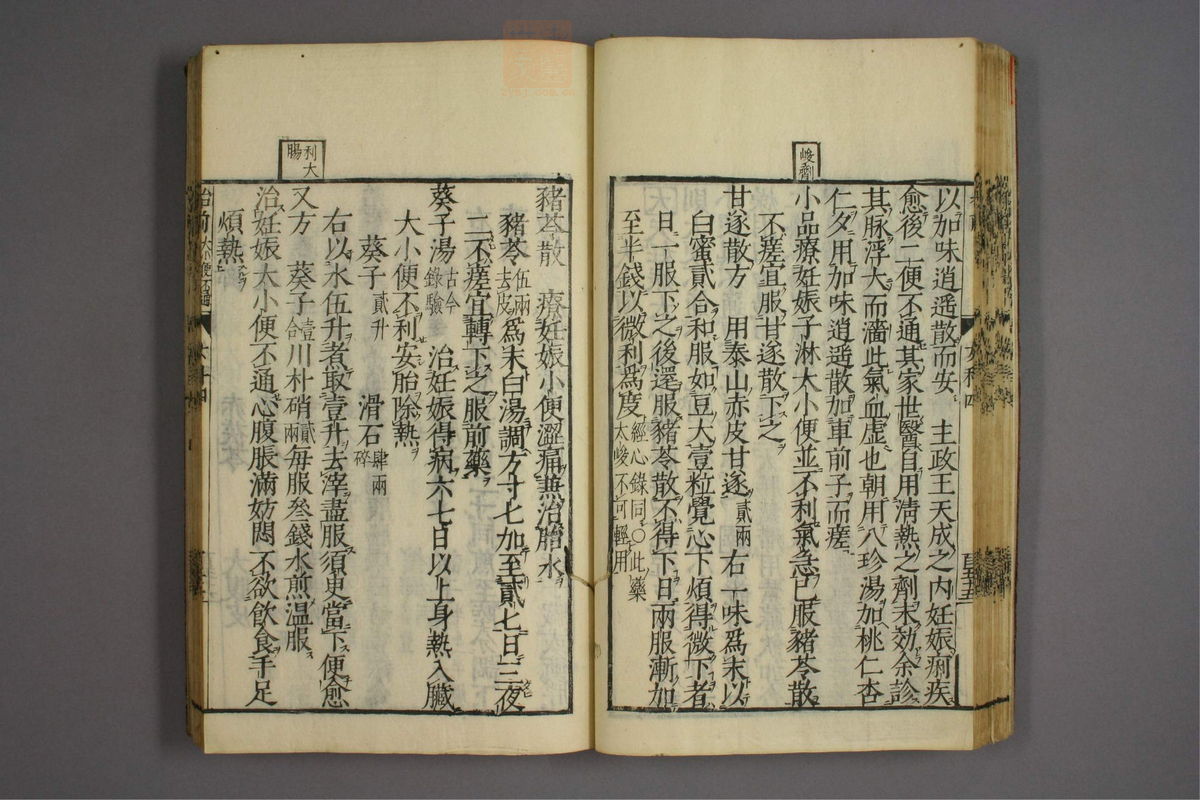 峻劑
以加味逍遥散而安　主政王天成之内妊娠痢疾
愈後二便不通其家世醫自用清熱之劑未効余診
其脉浮大而濇此氣血虚也朝用八珍湯加桃仁杏
仁夕用加味逍遥散加車前子而瘥
小品療妊娠子淋大小便並不利氣急已服豬苓散
不瘥宜服甘遂散下之
甘遂散方　用泰山赤皮甘遂貳兩右一味爲末以
白蜜貳合和服如豆大壹粒覺心下煩得微下者
日一服下之後還服豬苓散不得下日兩服漸加
至半錢以微利爲度經心錄同○此藥太峻不可輕用
利大腸
豬苓散　療妊娠小便澀痛兼治胎水
豬苓伍兩去皮爲末白湯調方寸七加至貳七日三夜
二不瘥宜轉下之服前藥
葵子湯古今錄驗　治妊娠得病六七日以上身熱入臟
大小便不利安胎除熱
葵子貳升　滑石肆兩碎
右以水伍升煮取壹升去滓盡服須臾當下便愈
又方　葵子壹合川朴硝貳兩每服叄錢水煎溫服
治妊娠大小便不通心腹脹滿妨悶不欲飲食手足
煩熱